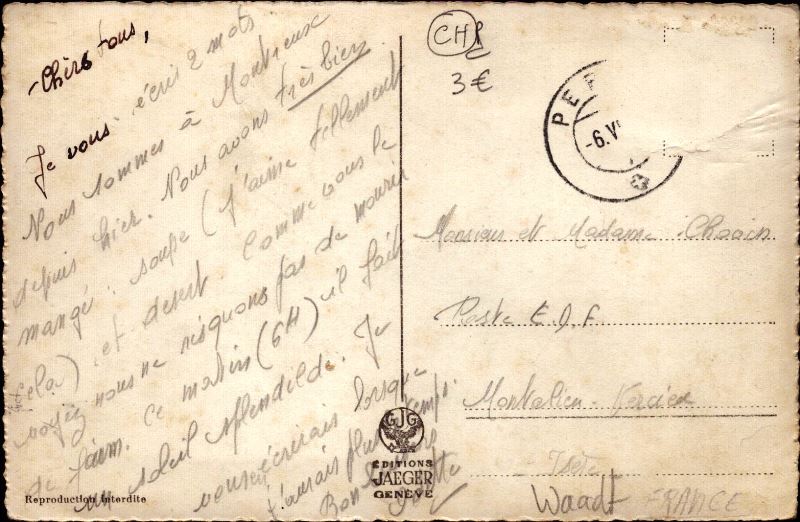 Chers tous,
Je vous écris 2 mots.
Nous sommes à Montreux
depuis hier. Nous avons très bien
mangé : soupe (j'aime tellement
cela) et desert. Comme vous le
voyez nous ne risquons pas de mourir
de faim. Ce matin (6H) il fait
un soleil splendide. Je
vous écrirais lorsque
j'aurais plus temps.
Bons
Reproduction interdite
GJG
ÉDITIONS
JAEGER
GENÈVE
CH
3 €
PE
-6.V
Monsieur et Madame
Poste E.D.F
Montalieu-Vercieu
Isère
Waadt FRANCE